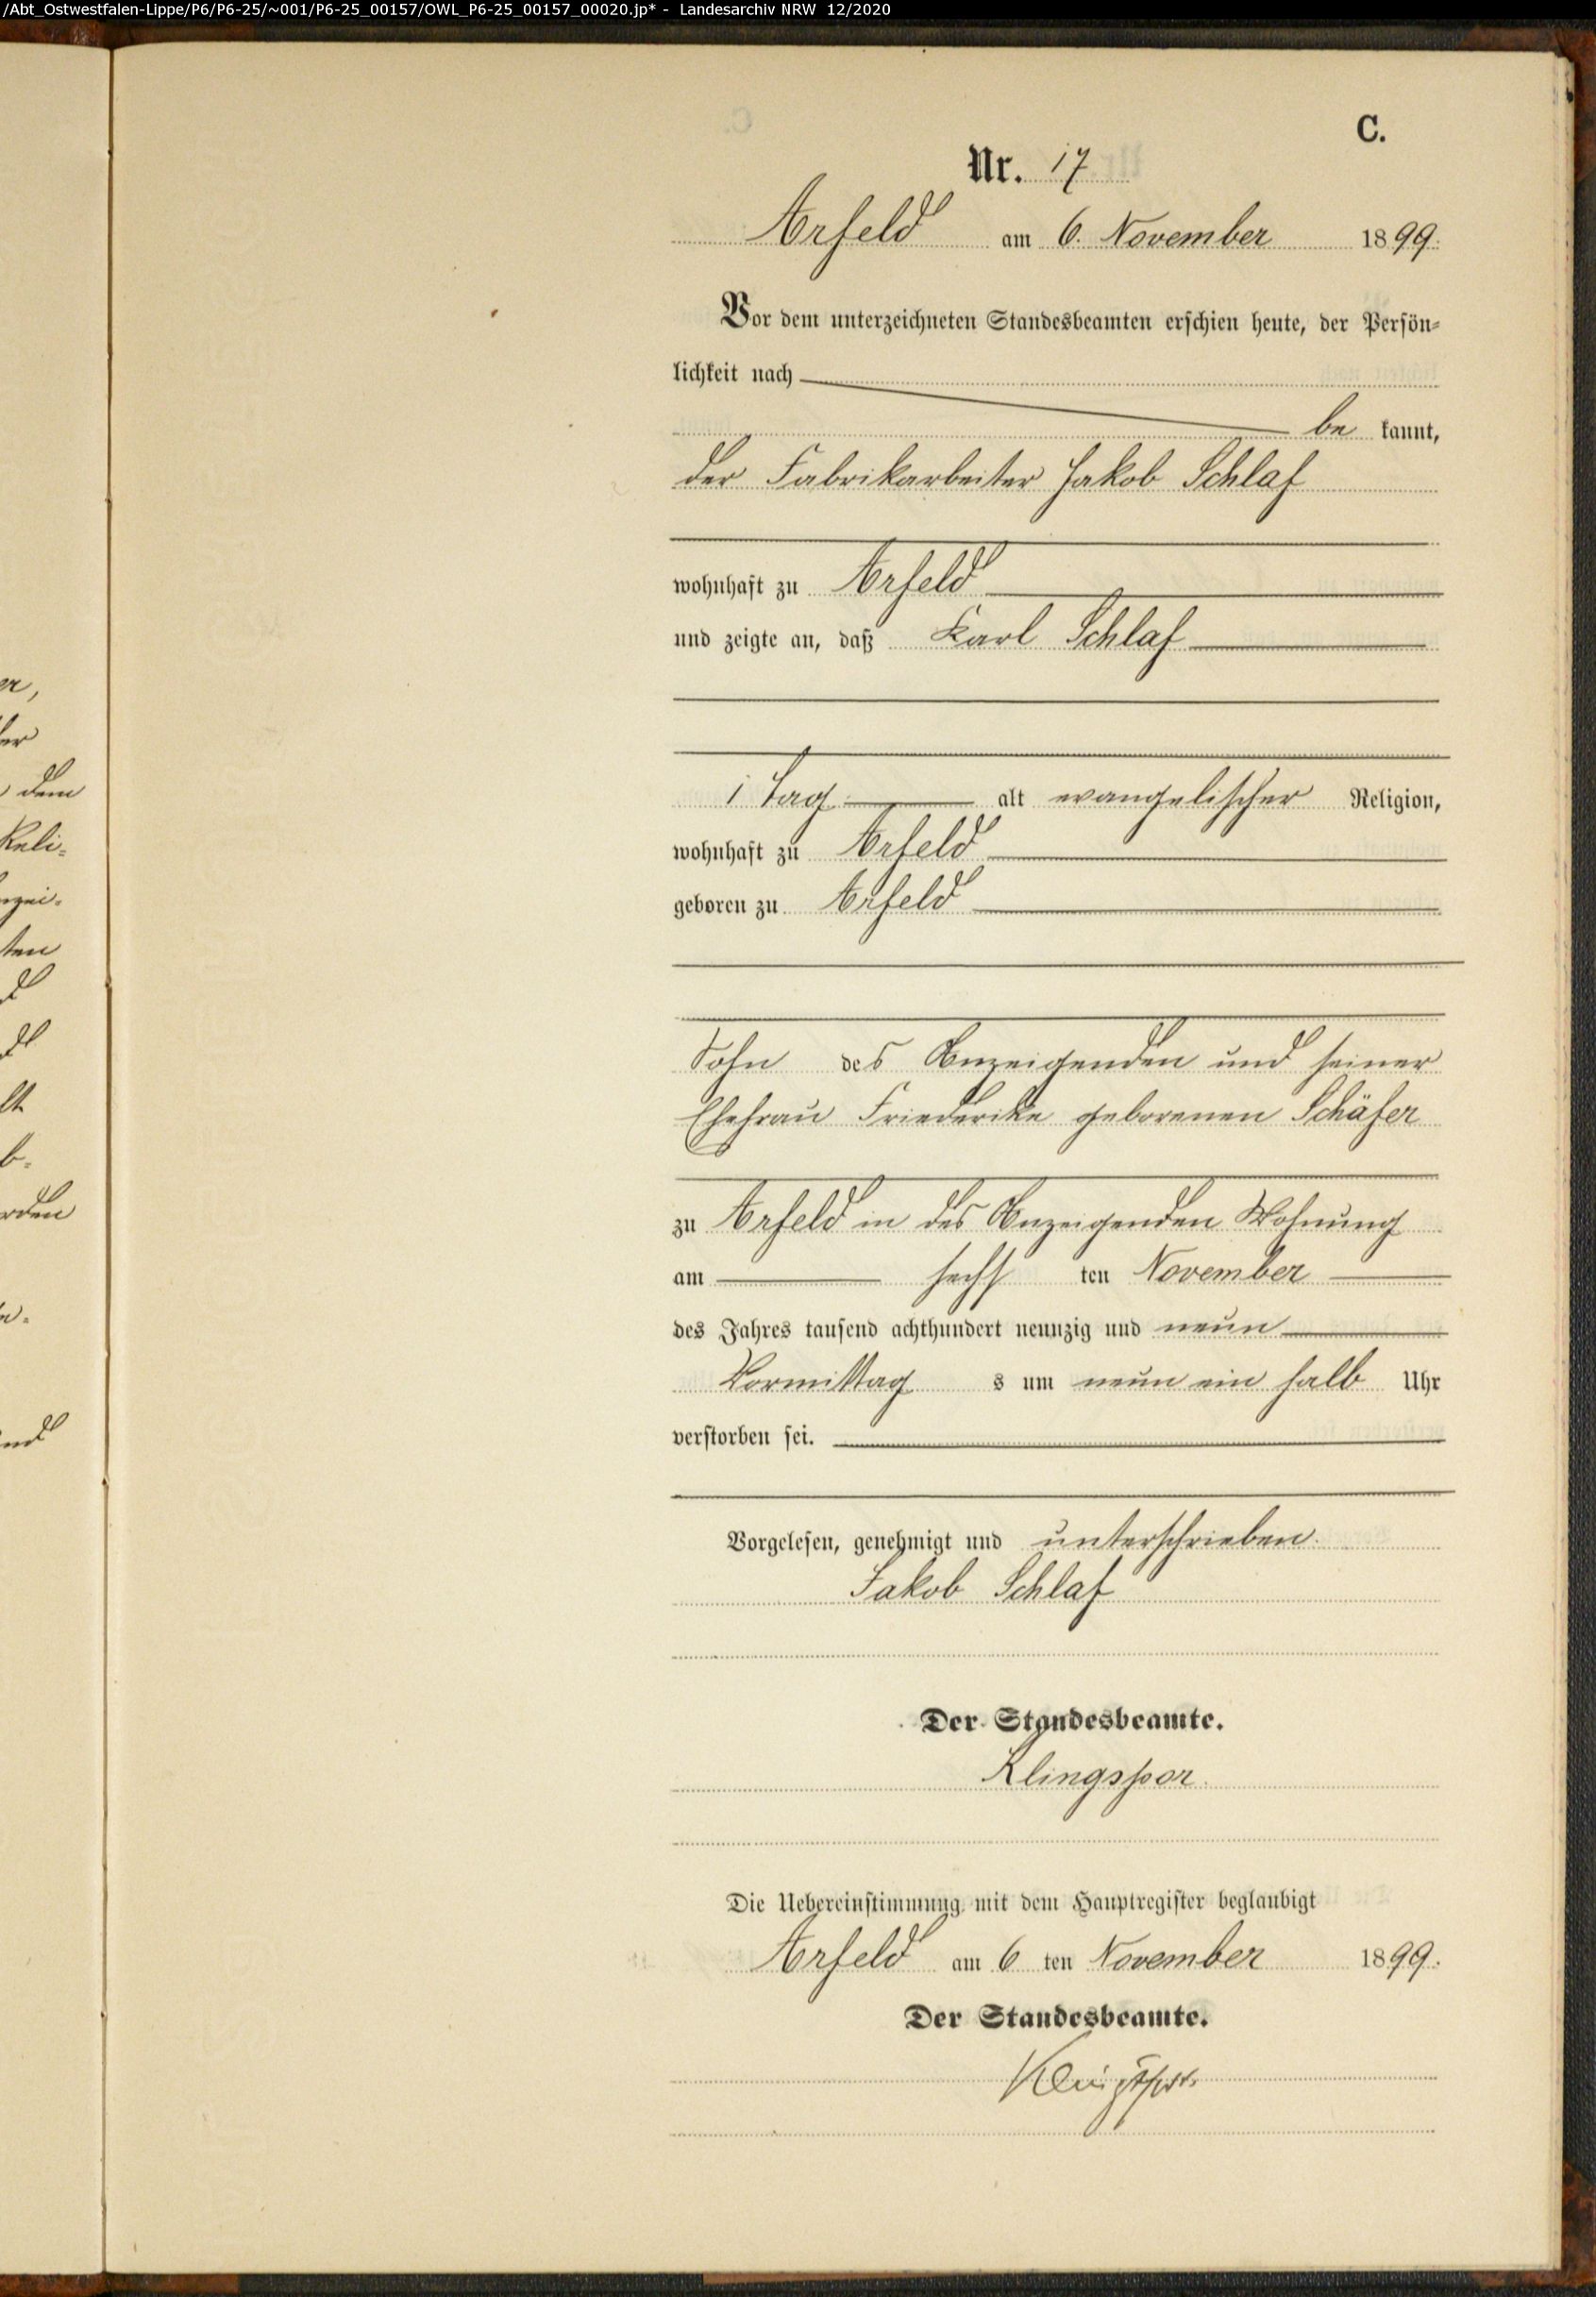 /Abt_Ostwestfalen-Lippe/P6/P6-25/~001/P6-25_00157/OWL_P6-25_00157_00020.jp* - Landesarchiv NRW 12/2020
C.
Nr. 17
Arfeld am 6. November 1899.
Vor dem unterzeichneten Standesbeamten erschien heute, der Persön-
lichkeit nach
be kannt,
der Fabrikarbeiter Jakob Schlaf
wohnhaft zu Arfeld
und zeigte an, daß Karl Schlaf
1 Tag alt evangelischer Religion,
wohnhaft zu Arfeld
geboren zu Arfeld
Sohn des Anzeigenden und seiner
Ehefrau Friederike geborenen Schäfer
zu Arfeld in des Anzeigenden Wohnung
am sechs ten November
des Jahres tausend achthundert neunzig und neun
Vormittag s um neun ein halb Uhr
verstorben sei.
Vorgelesen, genehmigt und unterschrieben.
Jakob Schlaf
Der Standesbeamte.
Klingspor.
Die Uebereinstimmung mit dem Hauptregister beglaubigt
Arfeld am 6 ten November 1899.
Der Standesbeamte.
Klingspor.
er,
her
dem
Reli-
ten
lt
b.
rden
n.
und